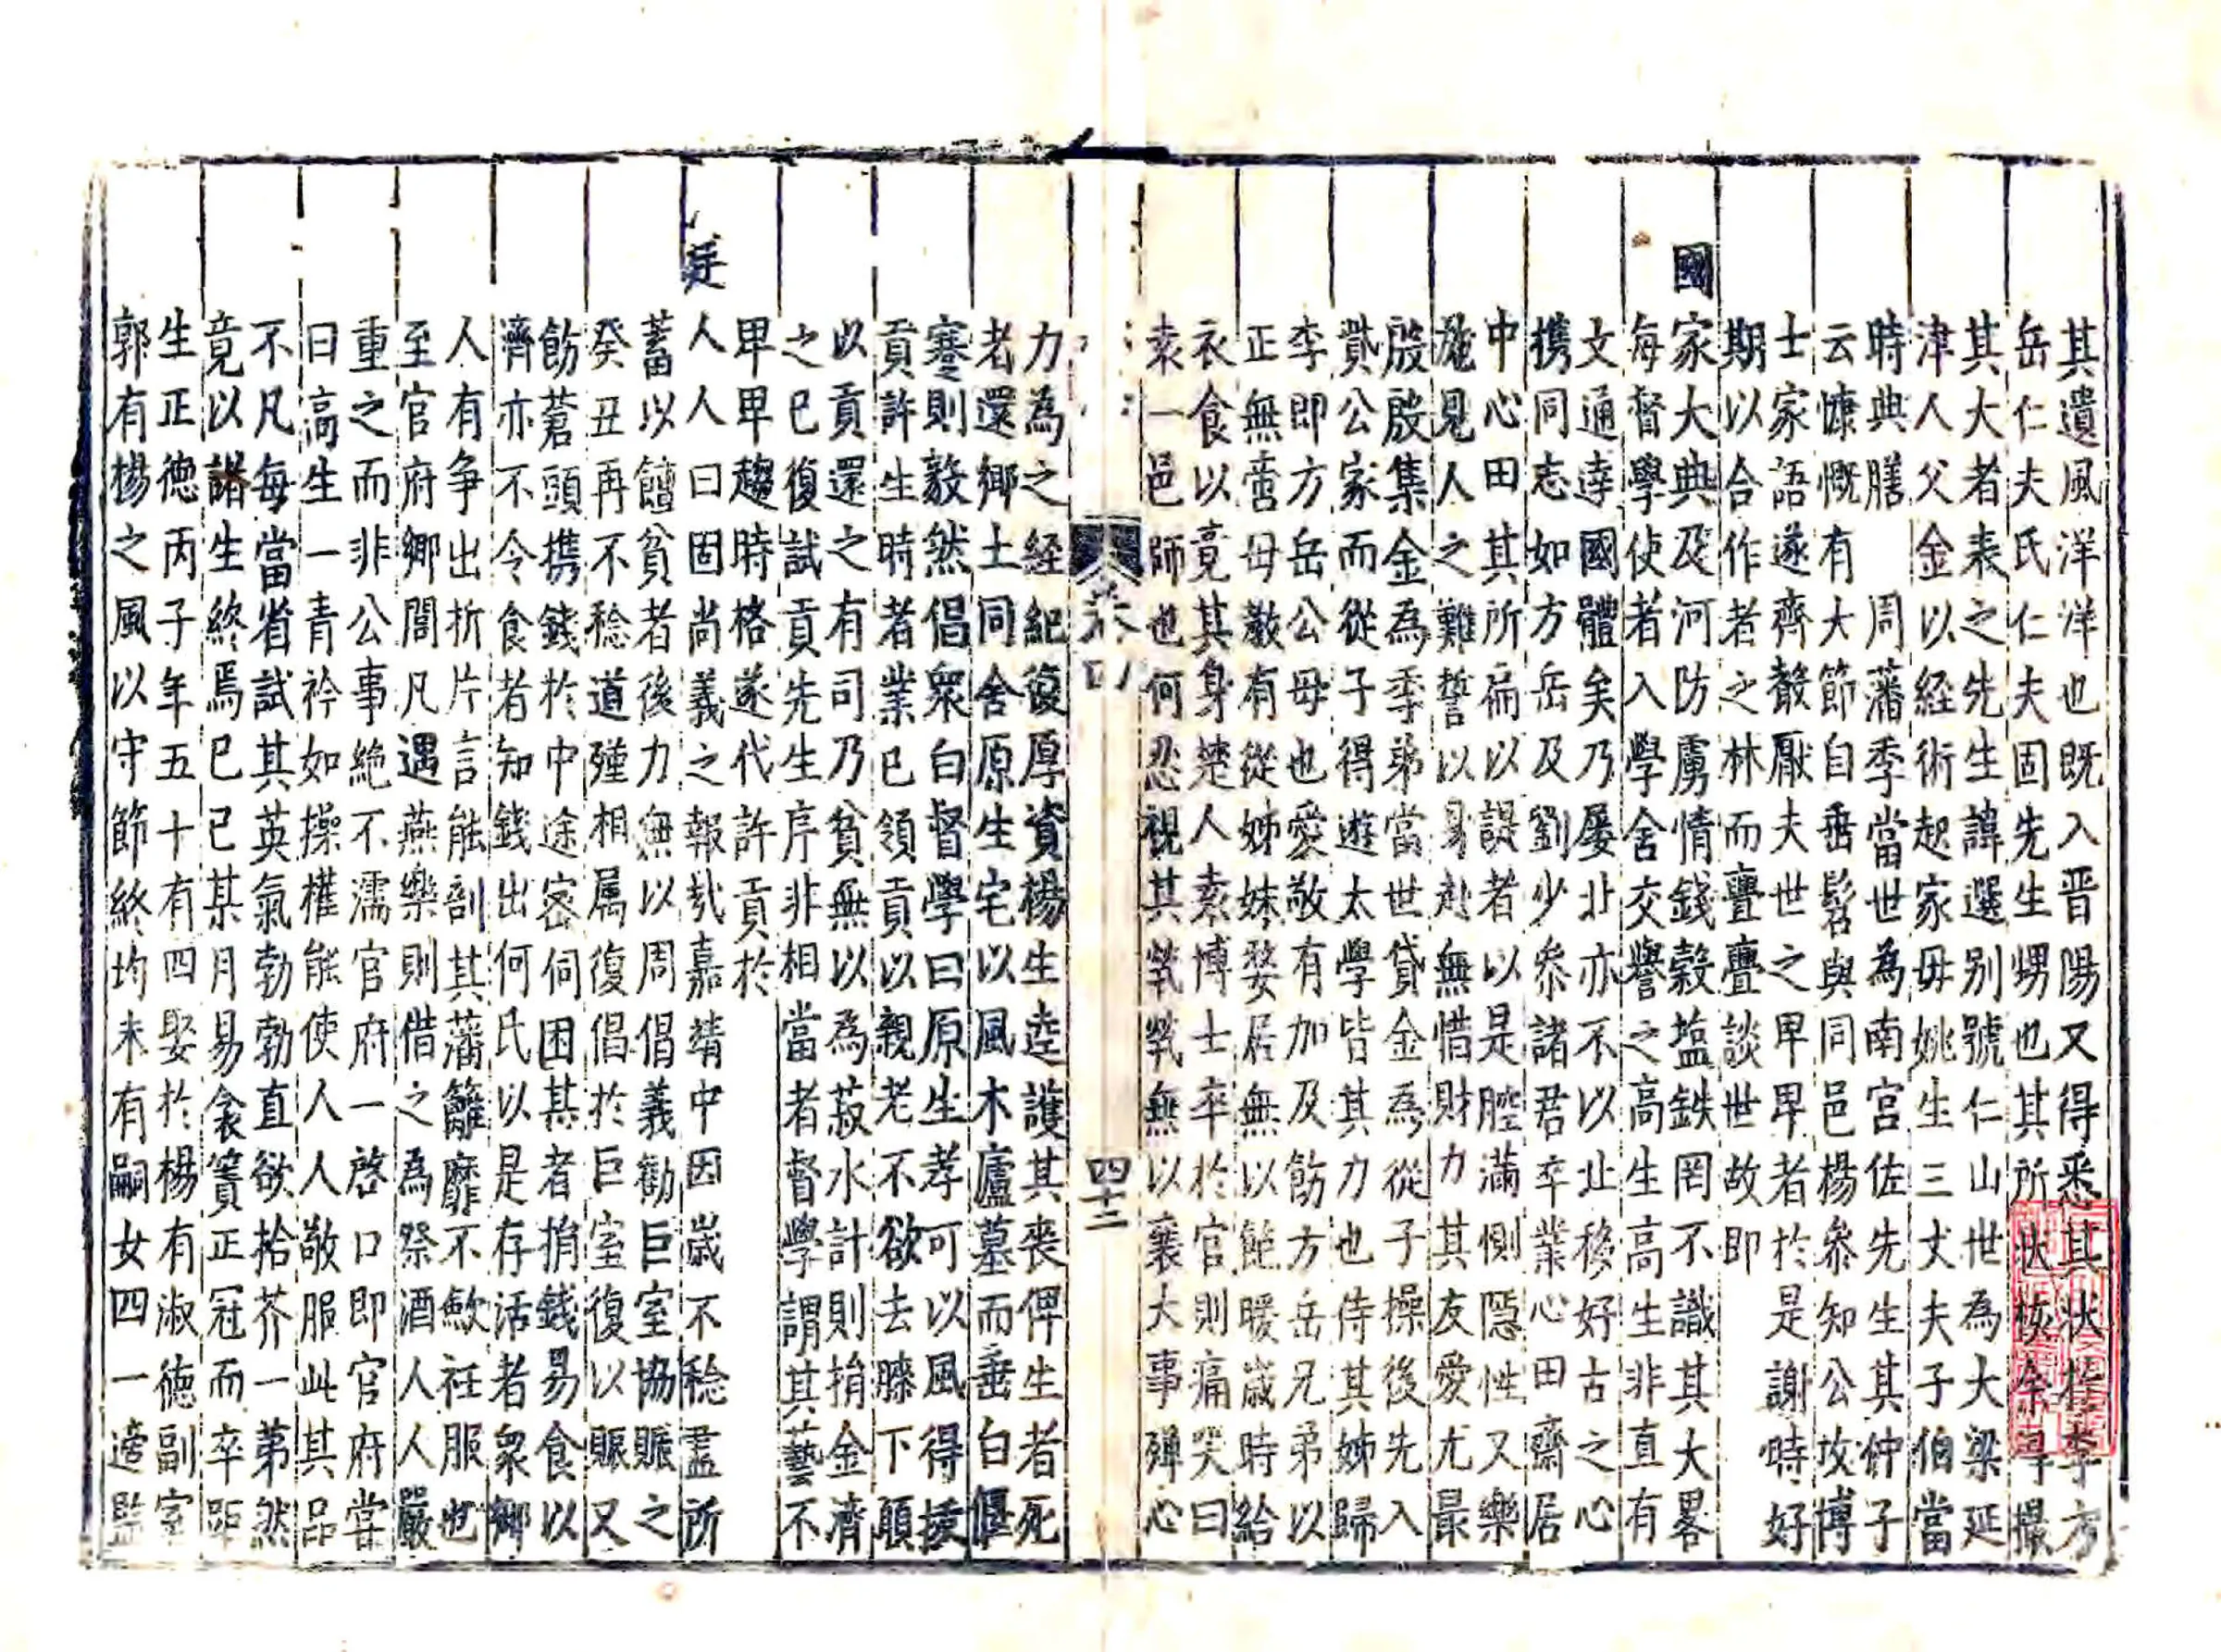 其遺風洋洋也既入晋陽又得悉其狀李方
岳仁夫氏仁夫固先生甥也其所狀核余撮
其大者表之先生諱選别號仁山世為大梁延
津人父金以経術起家毋姚生三丈夫子伯當
時典膳　周藩季當世為南宫佐先生其仲子
云慷慨有大節自垂髫與同邑楊叅知公攻博
士家語遂齊殽厭夫世之卑卑者於是謝時好
期以合作者之林而亹亹談世故即
國家大典及河防虜情錢穀塩鉄罔不識其大畧
每督學使者入學舍交譽之高生高生非直有
文通達國體矣乃屢北亦不以止移好古之心
携同志如方岳及劉少叅諸君卒業心田齋居
中心田其所扁以諟者以是腔滿惻隠性又樂
施見人之難誓以身赴無惜財力其友愛尤最
殷殷集金為季弟當世貸金為從子操後先入
貲公家而從子得遊太學皆其力也侍其姊歸
李即方岳公毋也愛敬有加及飭方岳兄弟以
正無啻毋敎有從姊妹嫠居無以飽暖歳時給
衣食以竟其身楚人袁博士卒於官則痛哭曰
袁一邑師也何忍視其煢煢無以襄大事殫心
卷四
四十二
力為之経紀復厚資楊生逵護其喪俾生者死
者還鄉土同舍原生宅以風木廬墓而垂白偃
蹇則毅然倡衆白督學曰原生孝可以風得揍
貢許生時者業已領貢以親老不欲去膝下願
以貢還之有司乃貧無以為菽水計則捐金濟
之已復試貢先生序非相當者督學謂其藝不
卑卑趨時格遂代許貢於
廷人人曰固尚義之報㢤嘉靖中因歳不稔盡所
蓄以饘貧者後力無以周倡義勸巨室協賑之
癸丑再不稔道殣相属復倡於巨室復以賑又
飭蒼頭携錢於中途宻伺困其者捎錢易食以
濟亦不令食者知錢出何氏以是存活者衆鄉
人有争出折片言能剖其藩籬靡不歃衽服也
至官府鄉閭凡遇燕樂則借之為祭酒人人嚴
重之而非公事絶不濡官府一啓口即官府嘗
曰高生一青衿如操權能使人人敬服此其品
不凡每當省試其英氣勃勃直欲拾芥一第然
竟以諸生終焉已巳某月易衾簀正冠而卒距
生正德丙子年五十有四娶於楊有淑德副室
郭有楊之風以守節終均未有嗣女四一適監